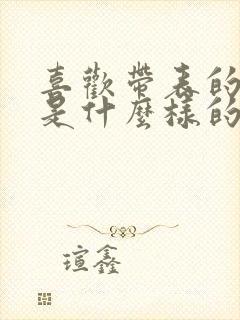 喜歡帶表的
是什麼樣的
瑄鑫